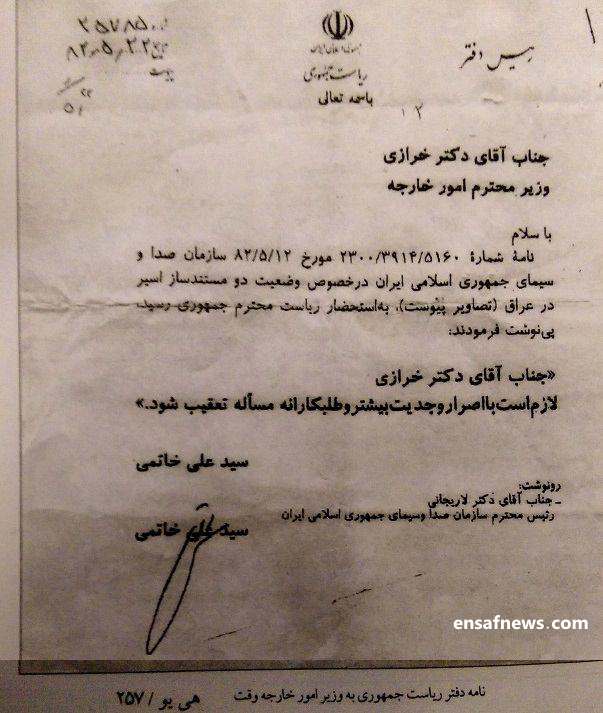 ۳۵۷۸۵
۸۲،۵،۲۲
پیوست
جمهوری اسلامی ایران
ریاست جمهوری
رییس دفتر
باسمه تعالی
جناب آقای دکتر خرازی
وزیر محترم امور خارجه
با سلام
نامهٔ شمارهٔ ۲۳۰۰/۳۹۱۴/۵۱۶۰ مورخ ۸۲/۵/۱۲ سازمان صدا و
سیمای جمهوری اسلامی ایران درخصوص وضعیت دو مستندساز اسیر
در عراق (تصاویر پیوست)، به‌استحضار ریاست محترم جمهوری رسید،
پی‌نوشت فرمودند:
«جناب آقای دکتر خرازی
لازم‌است‌بااصراروجدیت‌بیشتروطلبکارانه مسأله تعقیب شود.»
سید علی خاتمی
رونوشت:
ـ جناب آقای دکتر لاریجانی
رئیس محترم سازمان صدا وسیمای جمهوری اسلامی ایران
سید علی خاتمی
ensafnews.com
نامه دفتر ریاست جمهوری به وزیر امور خارجه وقت
هی یو / ۲۵۷